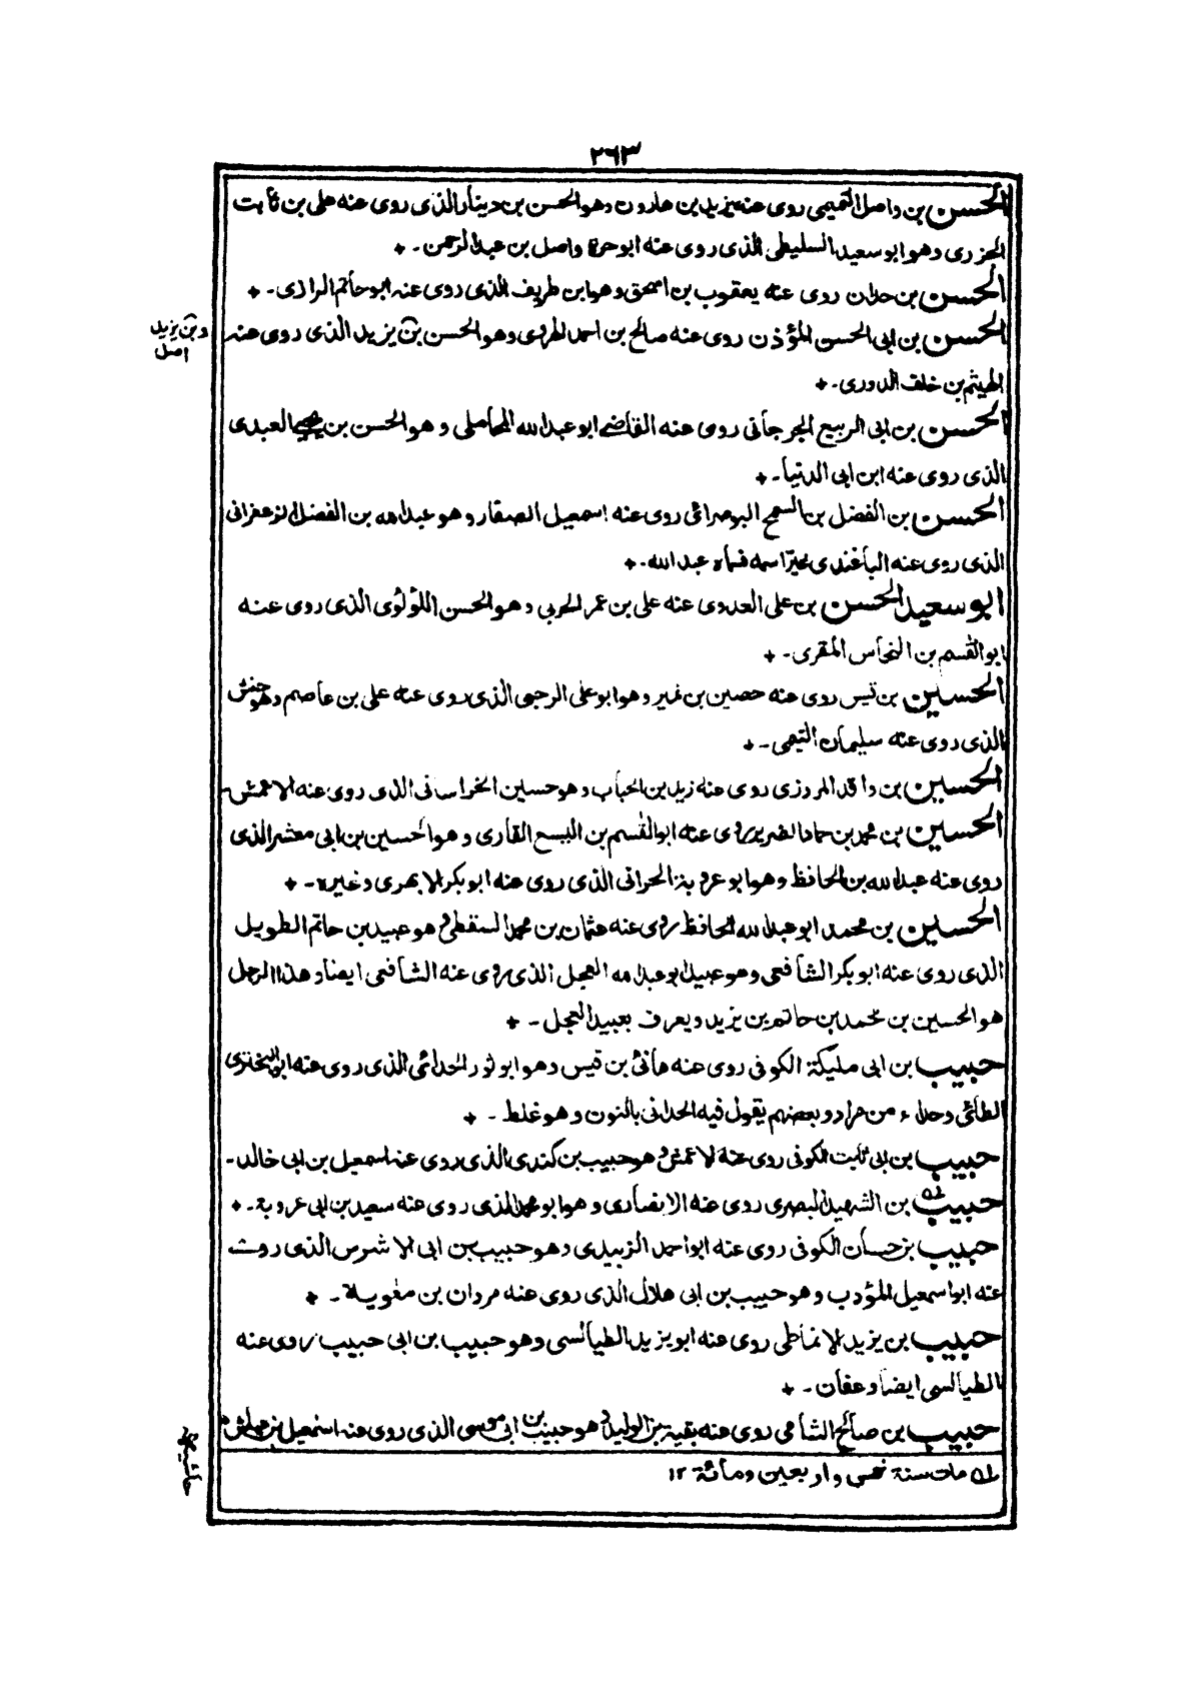 ٢٦٣
الحسن بن واصل التميمى روى عنه يزيد بن هارون وهو الحسن بن دينار الذى روى عنه على بن ثابت
الجزرى وهو ابو سعيد السليطى الذى روى عنه ابو حرة واصل بن عبد الرحمن ـ ٭
الحسن بن حدان روى عنه يعقوب بن اسحق وهو ابن ظريف الذى روى عنه ابو حاتم الرازى ـ ٭
الحسن بن ابى الحسن المؤذن روى عنه صالح بن احمد الهروى وهو الحسن بن يزيد الذى روى عنه
وبن يزيد اصل
الهيثم بن خلف الدورى ـ ٭
الحسن بن ابى الربيع الجرجانى روى عنه القاضى ابو عبد الله المحاملى وهو الحسن بن يحيى العبدى
الذى روى عنه ابن ابى الدنيا ـ ٭
الحسن بن الفضل بن السمح البوصرائى روى عنه اسمعيل الصفار وهو عبد الله بن الفضل الزعفرانى
الذى روى عنه الباغندى غيّر اسمه فسماه عبد الله ـ ٭
ابو سعيد الحسن بن على العدوى عنه على بن عمر الحربى وهو الحسن اللؤلوى الذى روى عنه
ابو القسم بن النحاس المقرى ـ ٭
الحسين بن قيس روى عنه حصين بن نمير وهو ابو على الرحبى الذى روى عنه على بن عاصم وهو حنش
الذى روى عنه سليمان التيمى ـ ٭
الحسين بن واقد المروزى روى عنه زيد بن الحباب وهو حسين الخراسانى الذى روى عنه الاعمش ـ
الحسين بن محمد بن حماد الضرير روى عنه ابو القسم بن اليسع القارى وهو الحسين بن ابى معشر الذى
روى عنه عبد الله بن الحافظ وهو ابو عروبة الحرانى الذى روى عنه ابو بكر الابهرى وغيره ـ ٭
الحسين بن محمد ابو عبد الله الحافظ روى عنه عثمان بن محمد السقطى وهو عبيد بن حاتم الطويل
الذى روى عنه ابو بكر الشافعى وهو عبيد ابو عبد الله العجل الذى روى عنه الشافعى ايضا وهذا الرجل
هو الحسين بن محمد بن حاتم بن يزيد ويعرف بعبيد العجل ـ ٭
حبيب بن ابى مليكة الكوفى روى عنه هانئ بن قيس وهو ابو ثور الحدائى الذى روى عنه ابو البخترى
الطائى وحداء من مراد وبعضهم يقول فيه الحدانى بالنون وهو غلط ـ ٭
حبيب بن ابى ثابت الكوفى روى عنه الاعمش وهو حبيب بن كندى الذى روى عنه اسمعيل بن ابى خالد ـ
حبيب بن الشهيد البصرى روى عنه الانصارى وهو ابو محمد الذى روى عنه سعيد بن ابى عروبة ـ ٭
حبيب بن حسان الكوفى روى عنه ابو احمد الزبيدى وهو حبيب بن ابى الاشرس الذى روى
عنه ابو اسمعيل المؤدب وهو حبيب بن ابى هلال الذى روى عنه مروان بن معٰوية ـ ٭
حبيب بن يزيد الانماطى روى عنه ابو يزيد الطيالسى وهو حبيب بن ابى حبيب روى عنه
الطيالسى ايضا وعفان ـ ٭
حبيب بن صالح الشامى روى عنه بقية بن الوليد وهو حبيب بن ابى موسى الذى روى عنه اسمعيل بن عياش ٭
حاشيه
مات سنة خمس واربعين ومائة ١٢